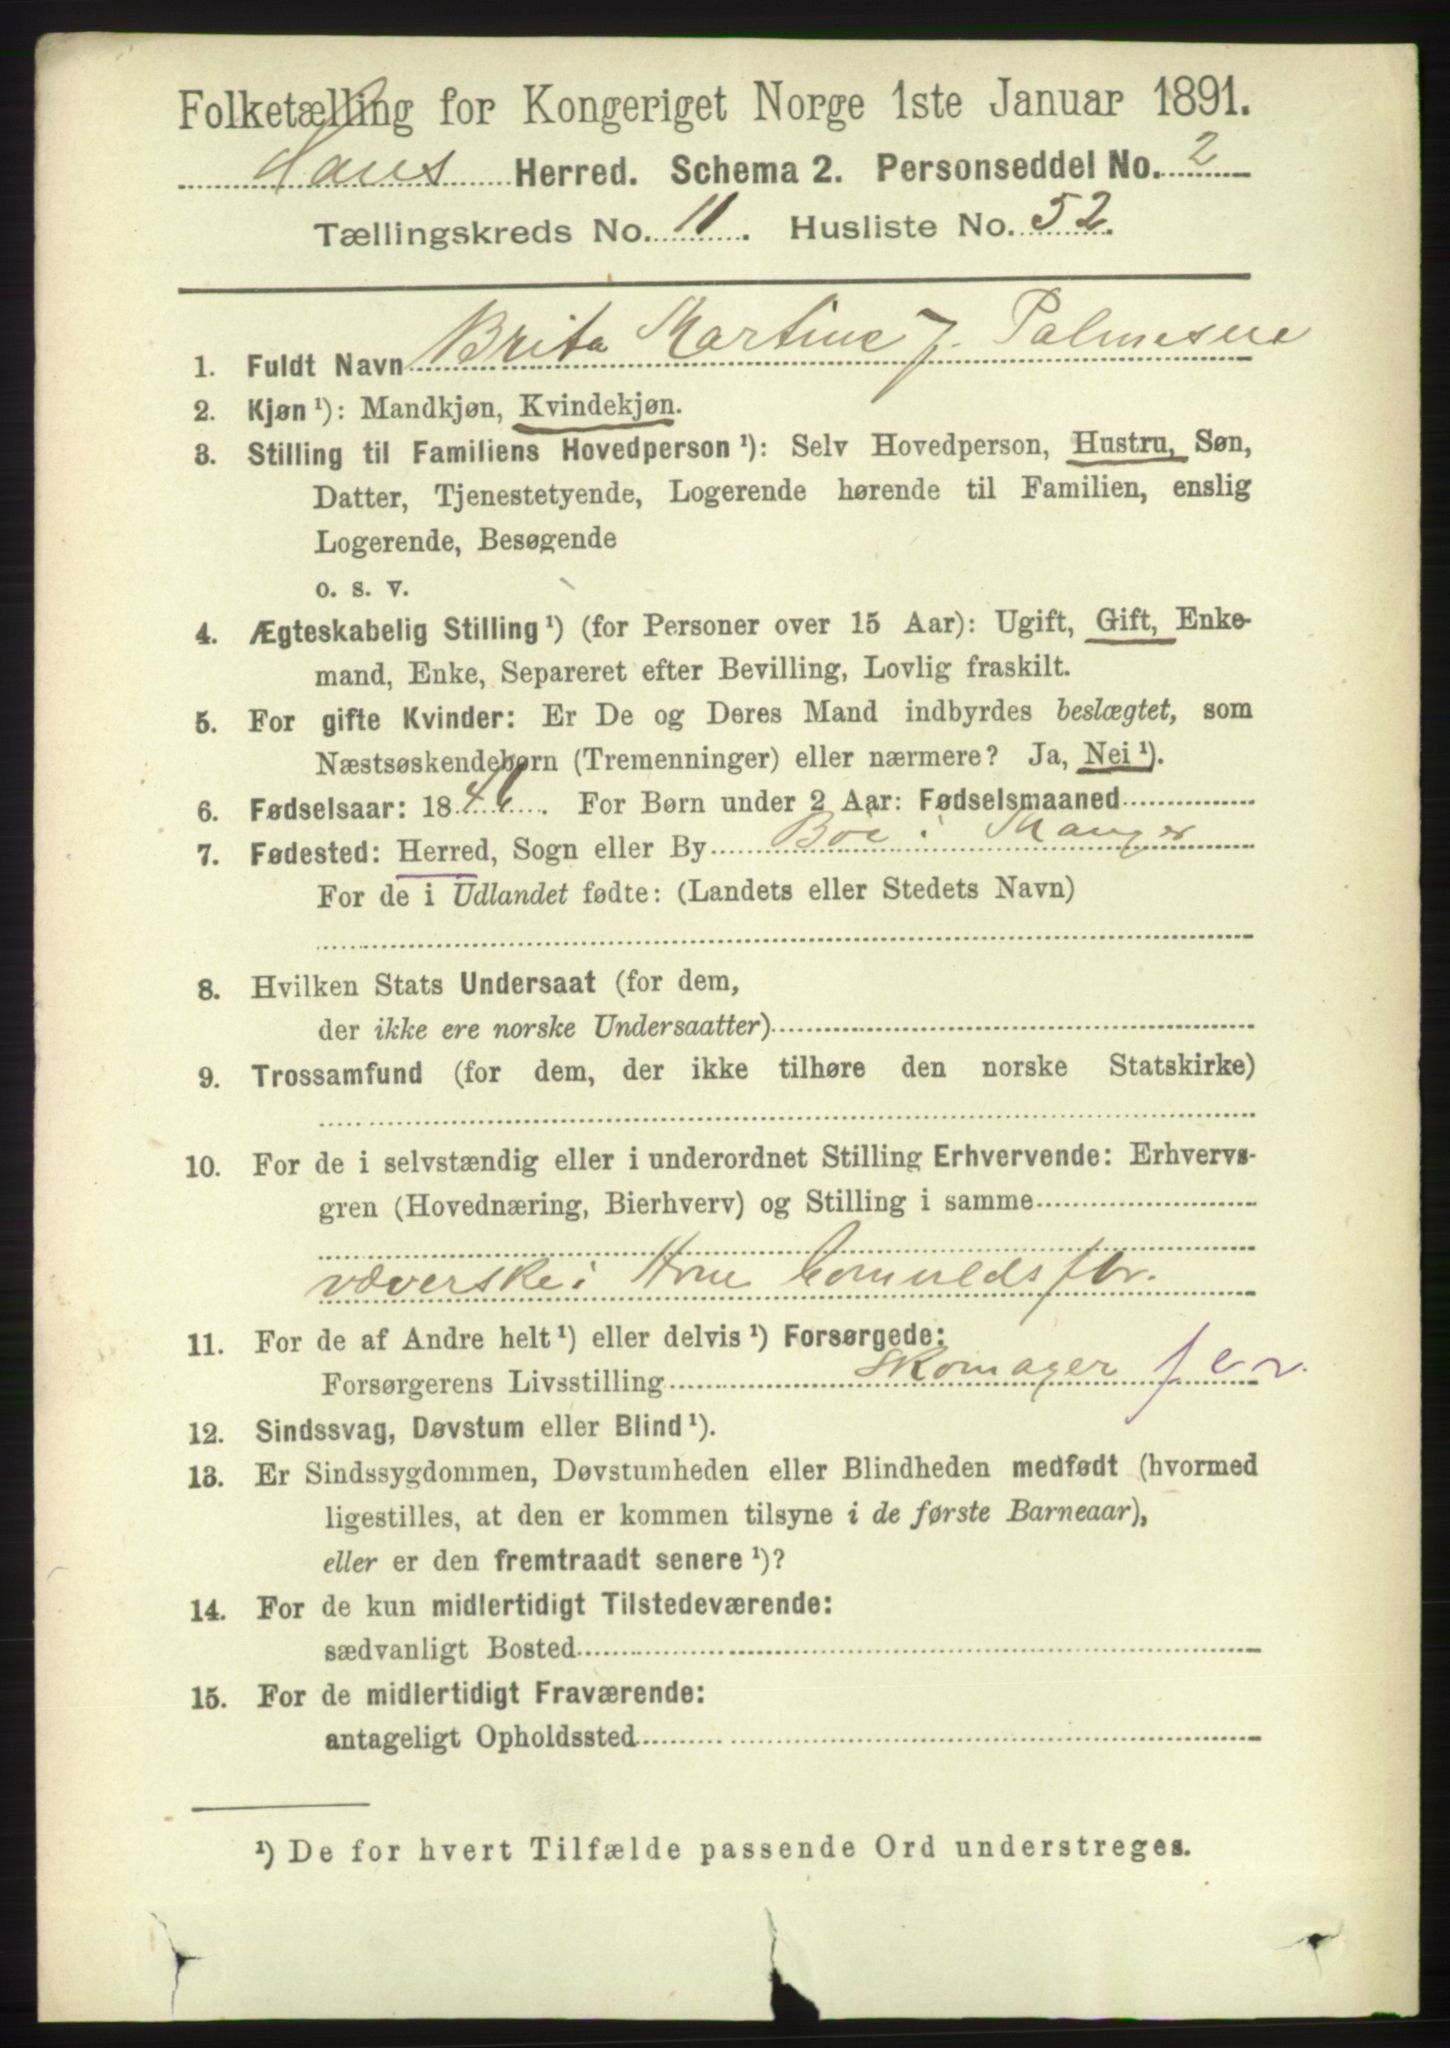 Folketælling for Kongeriget Norge 1ste Januar 1891.
Haus Herred. Schema 2. Personseddel No. 2
Tællingskreds No. 11. Husliste No. 52.
1. Fuldt Navn Brita Martine J. Palmesen
2. Kjøn ¹): Mandkjøn, Kvindekjøn.
3. Stilling til Familiens Hovedperson ¹): Selv Hovedperson, Hustru, Søn,
Datter, Tjenestetyende, Logerende hørende til Familien, enslig
Logerende, Besøgende
o. s. v.
4. Ægteskabelig Stilling ¹) (for Personer over 15 Aar): Ugift, Gift, Enke-
mand, Enke, Separeret efter Bevilling, Lovlig fraskilt.
5. For gifte Kvinder: Er De og Deres Mand indbyrdes beslægtet, som
Næstsøskendebørn (Tremenninger) eller nærmere? Ja, Nei ¹).
6. Fødselsaar: 1846. For Børn under 2 Aar: Fødselsmaaned
7. Fødested: Herred, Sogn eller By Böe i Manger
For de i Udlandet fødte: (Landets eller Stedets Navn)
8. Hvilken Stats Undersaat (for dem,
der ikke ere norske Undersaatter)
9. Trossamfund (for dem, der ikke tilhøre den norske Statskirke)
10. For de i selvstændig eller i underordnet Stilling Erhvervende: Erhvervs-
gren (Hovednæring, Bierhverv) og Stilling i samme
væverske i Arne fbr.
11. For de af Andre helt ¹) eller delvis ¹) Forsørgede:
Forsørgerens Livsstilling Skomager
12. Sindssvag, Døvstum eller Blind ¹).
13. Er Sindssygdommen, Døvstumheden eller Blindheden medfødt (hvormed
ligestilles, at den er kommen tilsyne i de første Barneaar),
eller er den fremtraadt senere ¹)?
14. For de kun midlertidigt Tilstedeværende:
sædvanligt Bosted
15. For de midlertidigt Fraværende:
antageligt Opholdssted
¹) De for hvert Tilfælde passende Ord understreges.